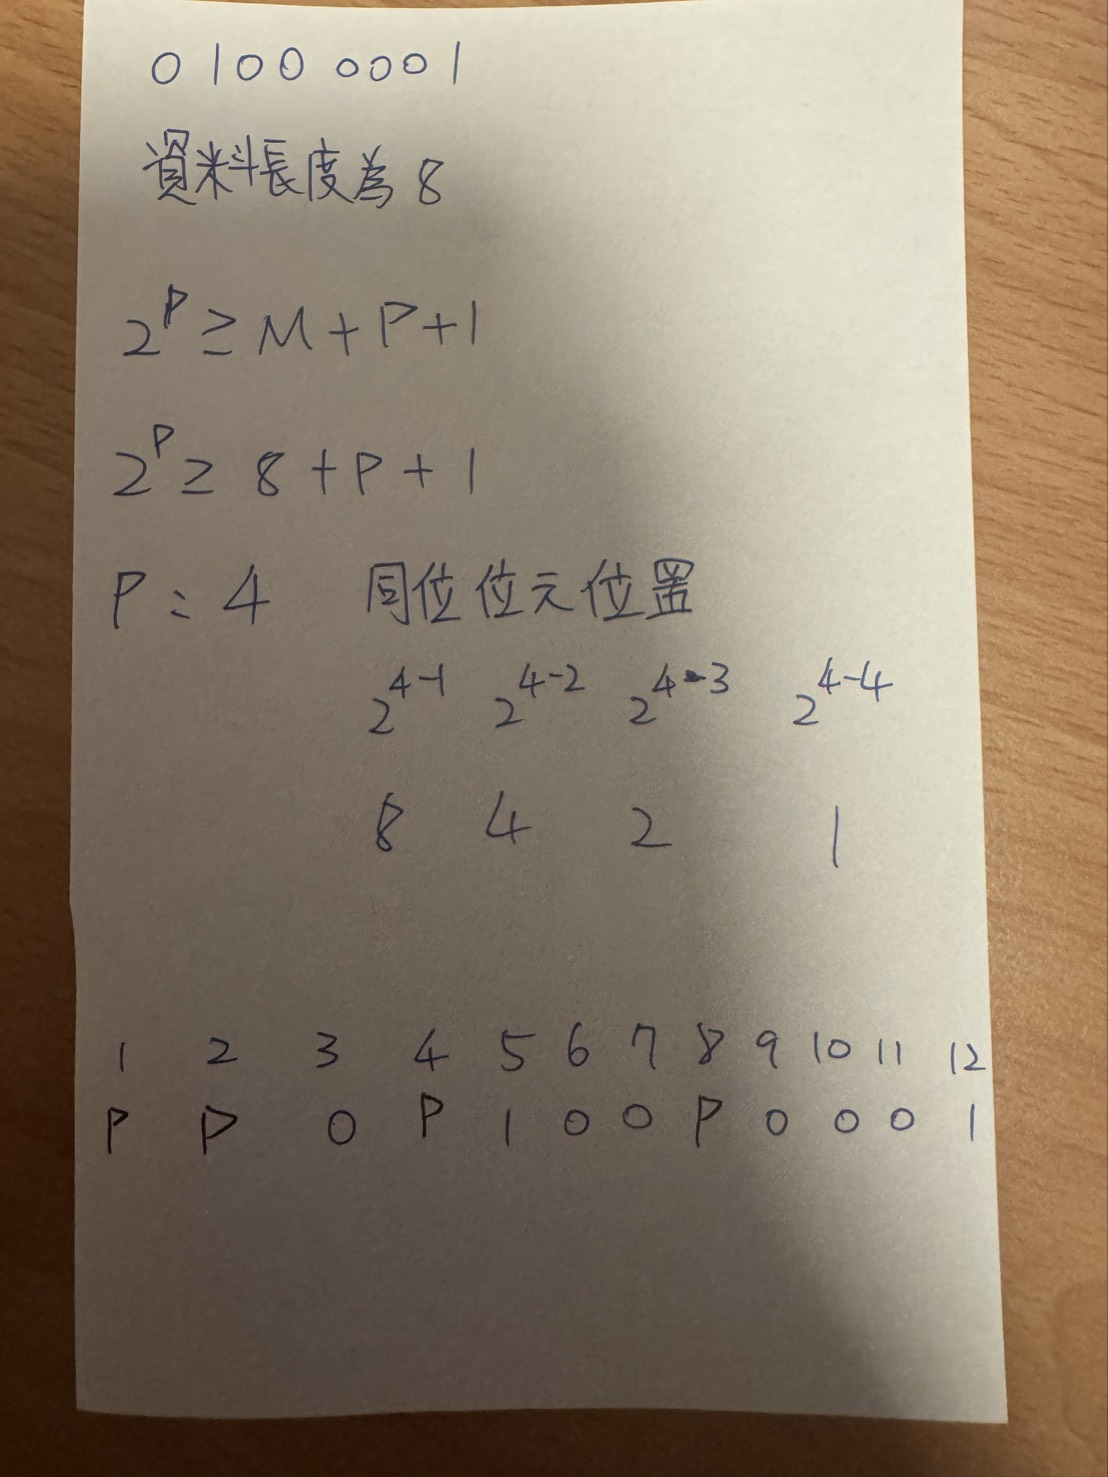 0100 0001
資料長度為 8
2^P ≥ M + P + 1
2^P ≥ 8 + P + 1
P : 4 同位位元位置
2^4-1 2^4-2 2^4-3 2^4-4
8 4 2 1
1 2 3 4 5 6 7 8 9 10 11 12
P P 0 P 1 0 0 P 0 0 0 1